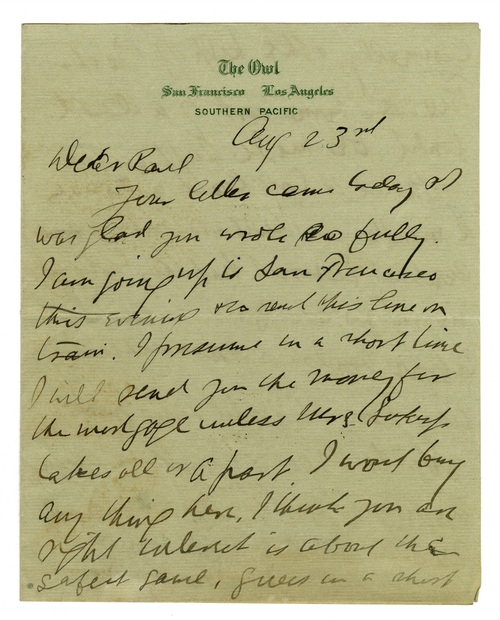 The Owl
San Francisco Los Angeles
SOUTHERN PACIFIC
Aug 23rd
Dear Paul
Your letter came today &
was glad you wrote so fully.
I am going up to San Francisco
this evening so send this line on
train. I presume in a short time
I will send you the money for
the mortgage unless Mrs.
takes all or a part. I wont buy
any thing here, I think you are
right interest is about the
safest game, guess in a short